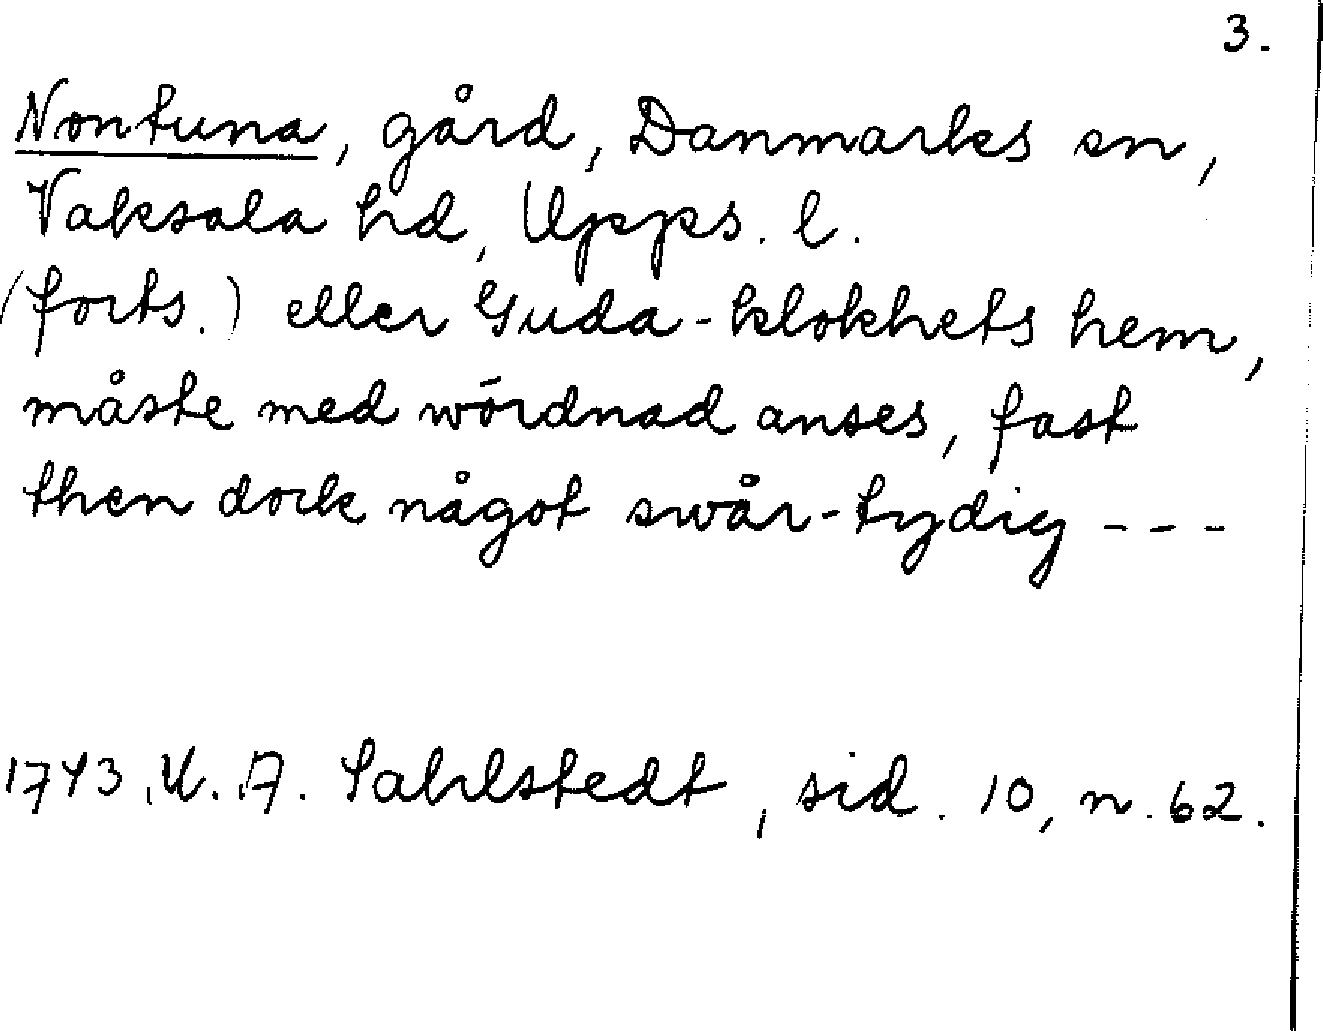 3.
Nontuna, gård, Danmarks sn,
Vaksala hd, Upps. l.
(forts.) eller Guda-klokhets hem,
måste med wördnad anses, fast
then dock något swår-tydig ---
1743, A. Sahlstedt, sid. 10, n. 62.